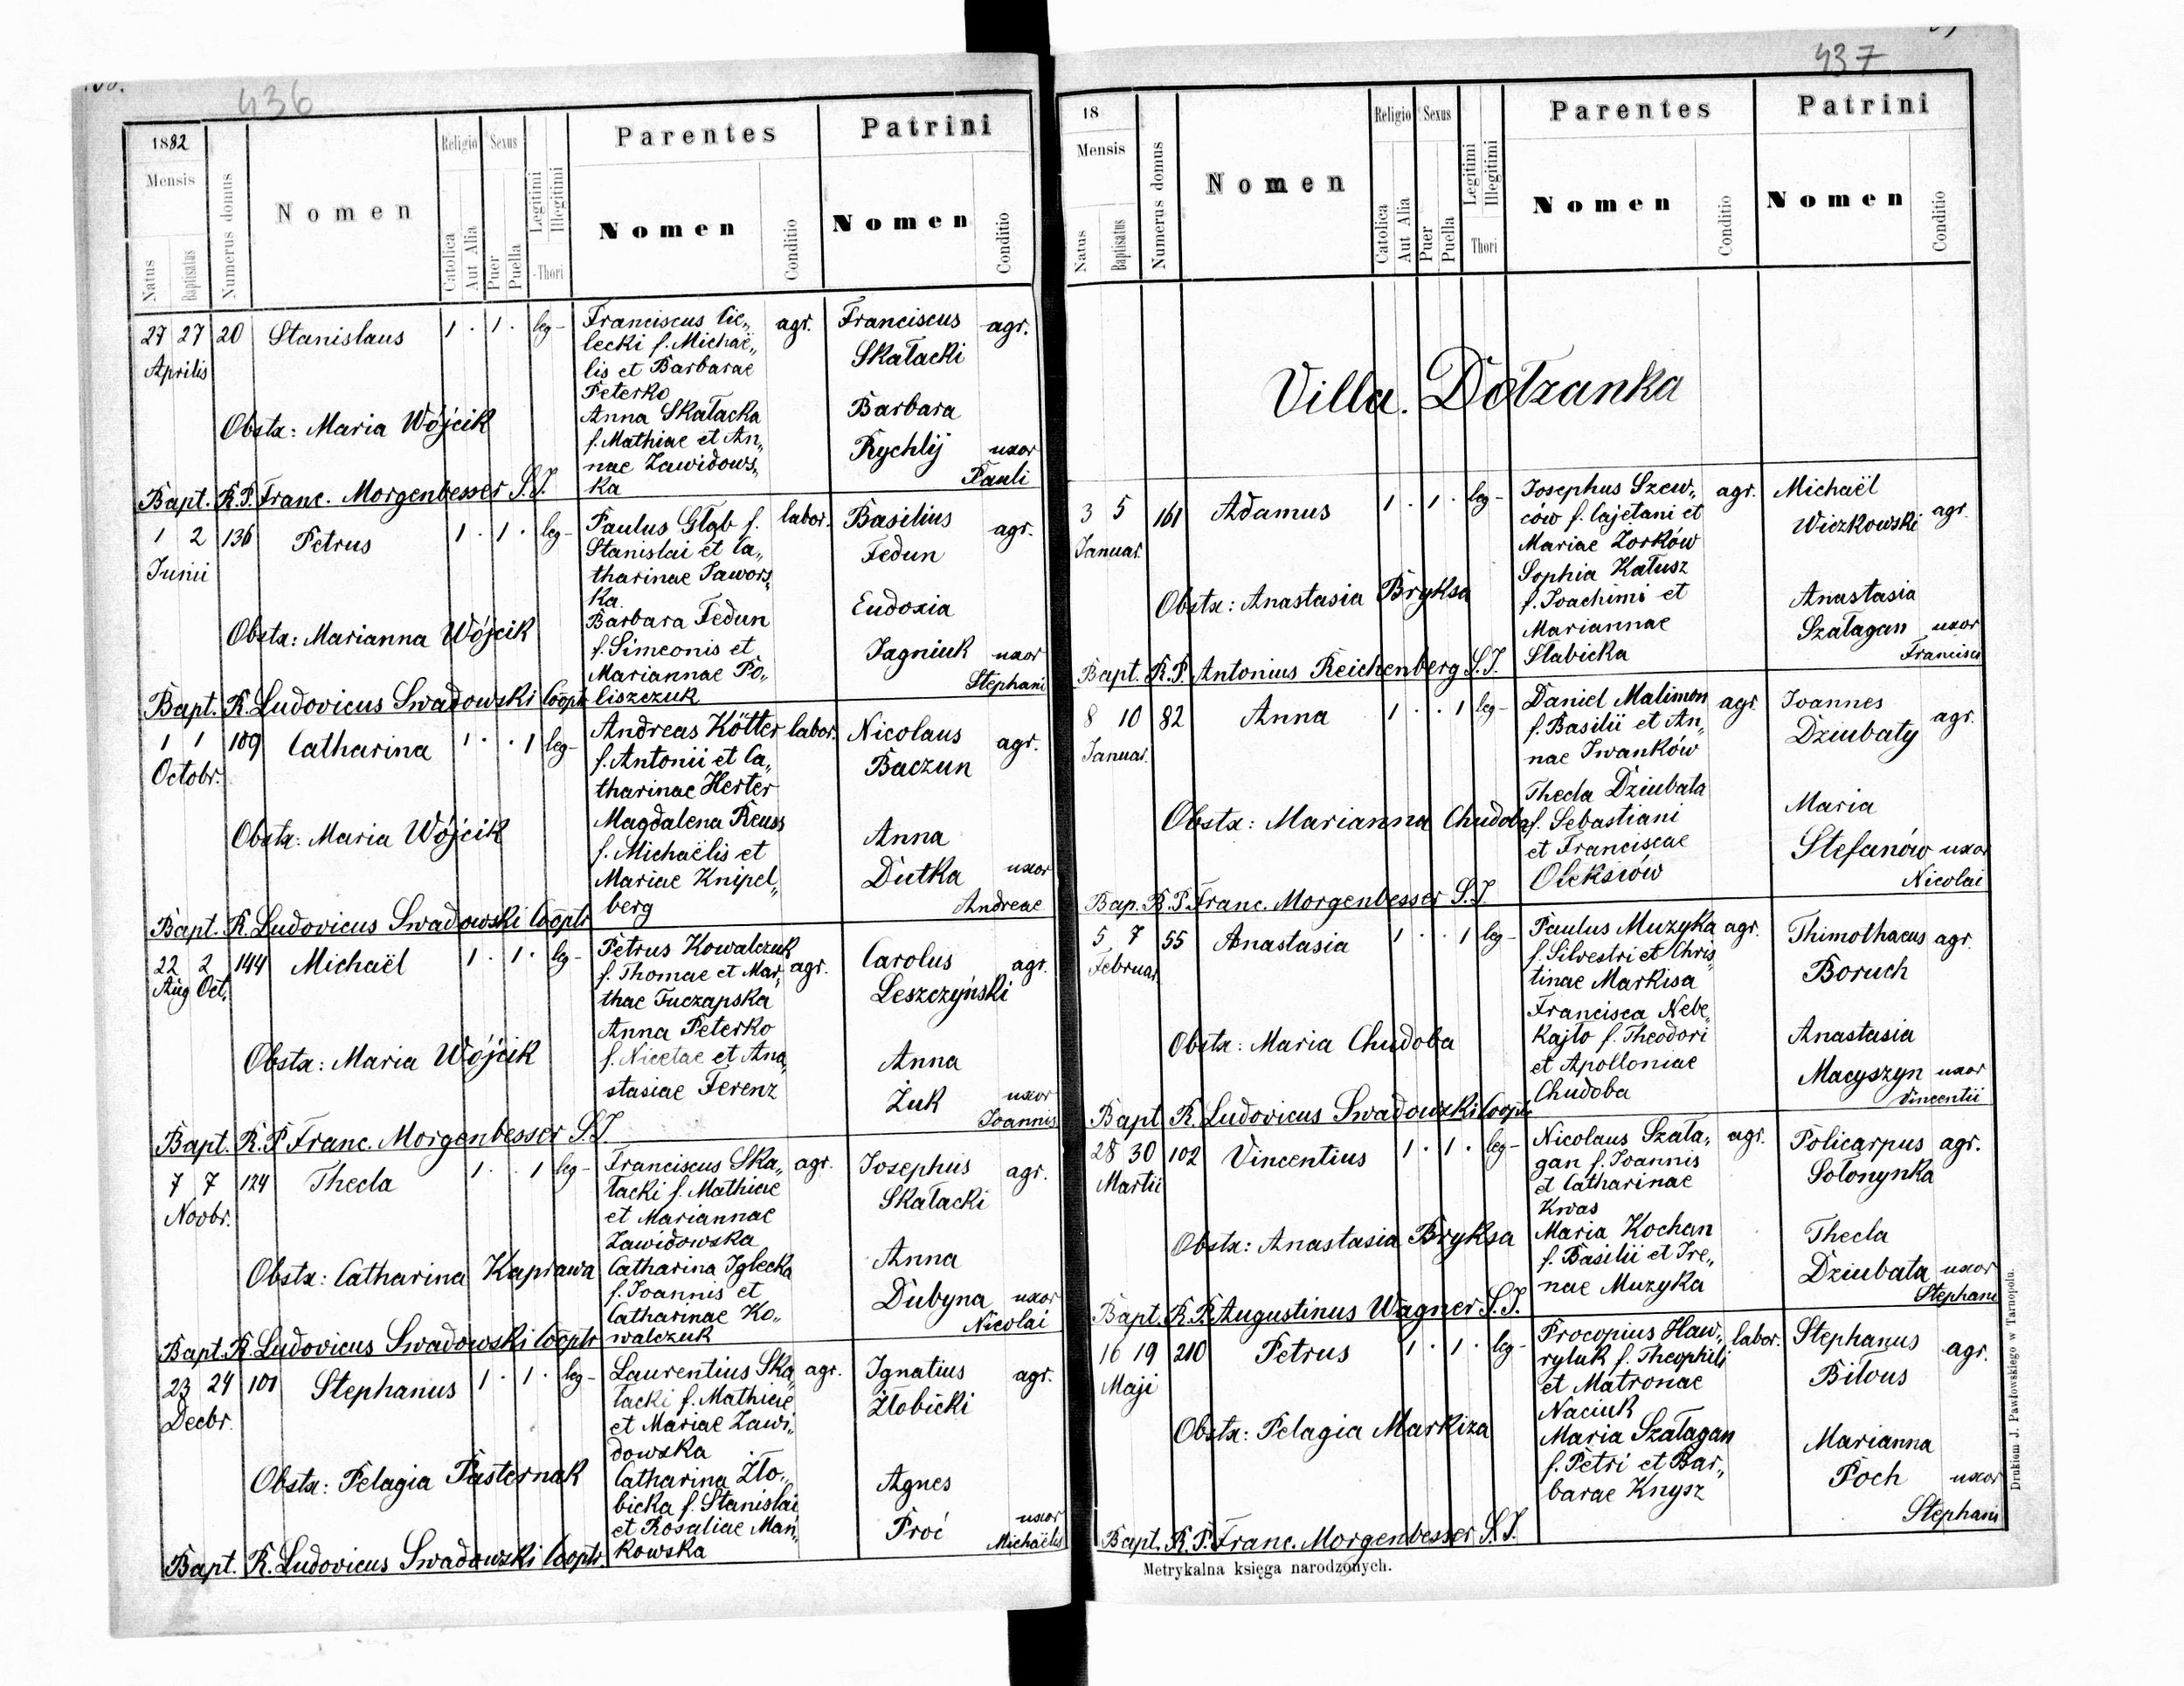 436
1882
Mensis
Natus
Baptisatus
Numerus domus
Nomen
Religio
Catolica
Aut Alia
Sexus
Puer
Puella
Legitimi
Illegitimi
Thori
Parentes
Nomen
Conditio
Patrini
Nomen
Conditio
27 27 20 Stanislaus 1 . 1 . leg-
Aprilis
Franciscus Cie„ agr.
lecki f. Michaë„
lis et Barbarae
Peterko
Anna Skałacka
f. Mathiae et An„
nae Zawidows„
ka
Franciscus agr.
Skałacki
Barbara
Rychlij uxor
Pauli
Obstx: Maria Wójcik
Bapt. R.P. Franc. Morgenbesser S.J.
1 2 136 Petrus 1 . 1 . leg-
Junii
Paulus Głąb f. labor.
Stanislai et Ca„
tharinae Jawors„
ka.
Barbara Fedun
f. Simeonis et
Mariannae Po„
liszczuk
Basilius agr.
Fedun
Eudoxia
Jagniuk uxor
Stephani
Obstx: Marianna Wójcik
Bapt. R. Ludovicus Swadowski Cooptr
1 1 109 Catharina 1 . . 1 leg-
Octobr.
Andreas Kötter labor.
f. Antonii et Ca„
tharinae Herter
Magdalena Reuss
f. Michaëlis et
Mariae Knipel„
berg
Nicolaus agr.
Baczun
Anna
Dutka uxor
Andreae
Obstx: Maria Wójcik
Bapt. R. Ludovicus Swadowski Cooptr
22 2 144 Michaël 1 . 1 . leg-
Aug Oct.
Petrus Kowalczuk
f. Thomae et Mar„ agr.
thae Tuczapska
Anna Peterko
f. Nicetae et Ana„
stasiae Ferenz
Carolus agr.
Leszczyński
Anna
Żuk uxor
Joannis
Obstx: Maria Wójcik
Bapt. R.P. Franc. Morgenbesser S.J.
7 7 124 Thecla 1 . . 1 leg-
Novbr.
Franciscus Ska„ agr.
łacki f. Mathiae
et Mariannae
Zawidowska
Catharina Iglecka
f. Joannis et
Catharinae Ko„
walczuk
Josephus agr.
Skałacki
Anna
Dubyna uxor
Nicolai
Obstx: Catharina Kaprawa
Bapt. R. Ludovicus Swadowski Cooptr
23 24 101 Stephanus 1 . 1 . leg-
Decbr.
Laurentius Ska„ agr.
łacki f. Mathiae
et Mariae Zawi„
dowska
Catharina Żło„
bicka f. Stanislai
et Rosaliae Mań„
kowska
Ignatius agr.
Żłobicki
Agnes
Proć uxor
Michaëlis
Obstx: Pelagia Pasternak
Bapt. R. Ludovicus Swadowski Cooptr
437
18
Mensis
Natus
Baptisatus
Numerus domus
Nomen
Religio
Catolica
Aut Alia
Sexus
Puer
Puella
Legitimi
Illegitimi
Thori
Parentes
Nomen
Conditio
Patrini
Nomen
Conditio
Villa. Dołzanka
3 5 161 Adamus 1 . 1 . leg-
Januar.
Josephus Szew„ agr.
ców f. Cajetani et
Mariae Żorków
Sophia Kałusz
f. Joachimi et
Mariannae
Słabicka
Michaël
Wiczkowski agr.
Anastasia
Szałagan uxor
Francisci
Obstx: Anastasia Bryksa
Bapt. R.P. Antonius Reichenberg S.J.
8 10 82 Anna 1 . . 1 leg-
Januar.
Daniel Malimon agr.
f. Basilii et An„
nae Iwanków
Thecla Dziubata
f. Sebastiani
et Franciscae
Oleksiów
Joannes agr.
Dziubaty
Maria
Stefanów uxor
Nicolai
Obstx: Marianna Chudoba
Bap. R.P. Franc. Morgenbesser S.J.
5 7 55 Anastasia 1 . . 1 leg-
Februar.
Paulus Muzyka agr.
f. Silvestri et Chris„
tinae Markisa
Francisca Nebe„
kajło f. Theodori
et Apolloniae
Chudoba
Thimothaeus agr.
Boruch
Anastasia
Macyszyn uxor
Vincentii
Obstx: Maria Chudoba
Bapt. R. Ludovicus Swadowski Cooptr
28 30 102 Vincentius 1 . 1 . leg-
Martii
Nicolaus Szała„ agr.
gan f. Joannis
et Catharinae
Kwas
Maria Kochan
f. Basilii et Ire„
nae Muzyka
Policarpus agr.
Sołonynka
Thecla
Dziubata uxor
Stephani
Obstx: Anastasia Bryksa
Bapt. R.P. Augustinus Wagner S.J.
16 19 210 Petrus 1 . 1 . leg-
Maji
Procopius Haw„ labor.
ryluk f. Theophili
et Matronae
Naciuk
Maria Szałagan
f. Petri et Bar„
barae Knysz
Stephanus agr.
Biłous
Marianna
Poch uxor
Stephani
Obstx: Pelagia Markiza
Bapt. R.P. Franc. Morgenbesser S.J.
Metrykalna księga narodzonych.
Drukiem J. Pawłowskiego w Tarnopolu.